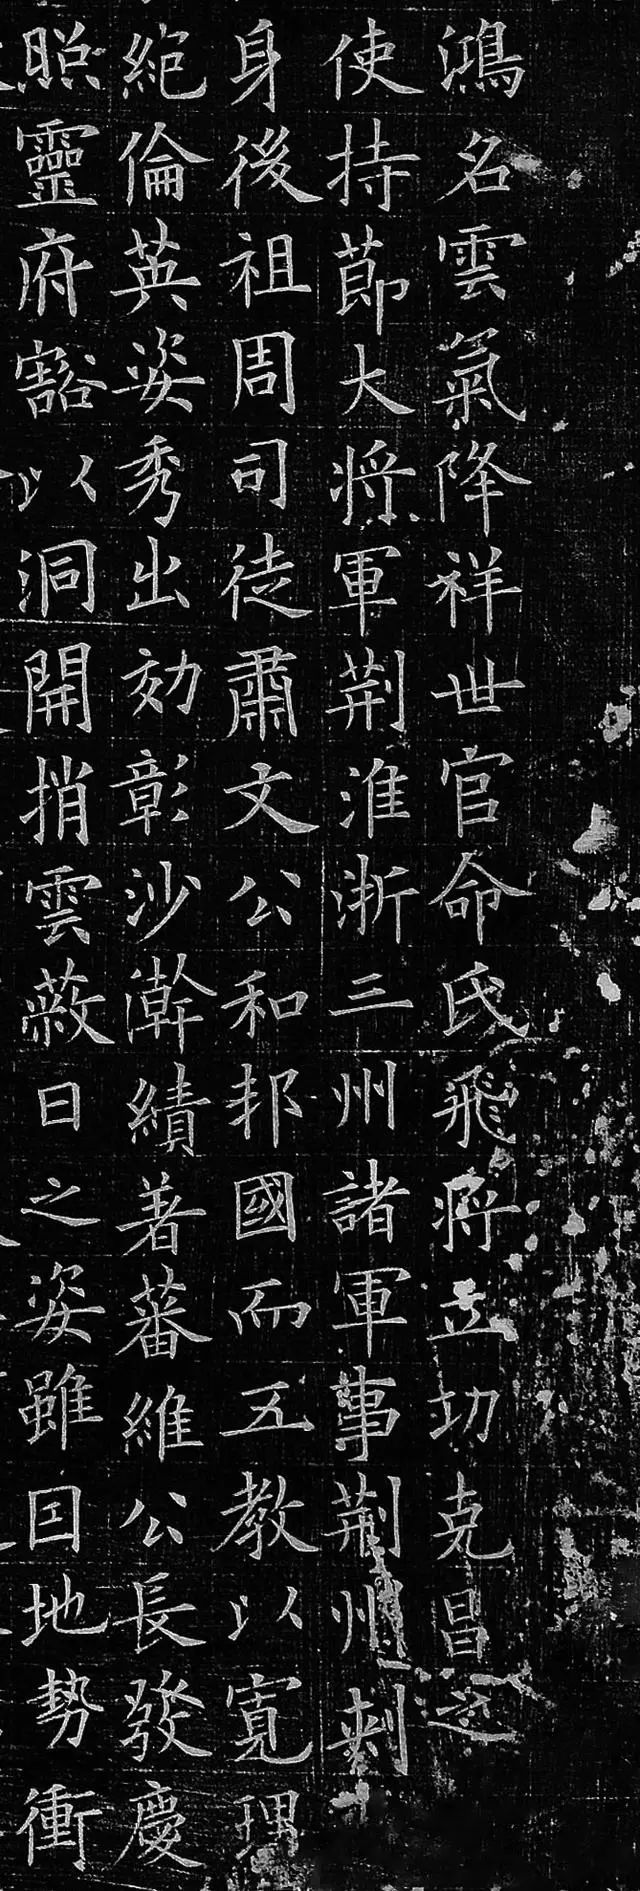 鴻名雲氣降祥世官命氏飛將立功克昌之
使持節大將軍荆淮浙三州諸軍事荆州刺
身後祖周司徒肅文公和邦國而五教以寬理
絕倫英姿秀出効彰沙澣績著蕃維公長發慶
照靈府豁以洞開捎雲蔽日之姿雖因地勢衝